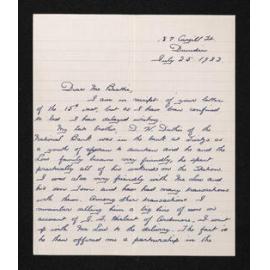 87 Cargill St.
Dunedin
July 25 1983
Dear Mr Beattie,
I am in receipt of your letter
of the 15th inst, but as I have been confined
to bed I have delayed writing.
My late brother, D. W. of the
National Bank was in the bank at
a youth of and he and the
family became very friendly, he spent
practically all of his weekends on the Station.
I was also very friendly with Mr and
his son and have had many transactions
with them. Among other transactions I
remember selling him a big line of ewes on
account of of I went
up with Mr to the delivery. The fact is
he then offered me a partnership in the